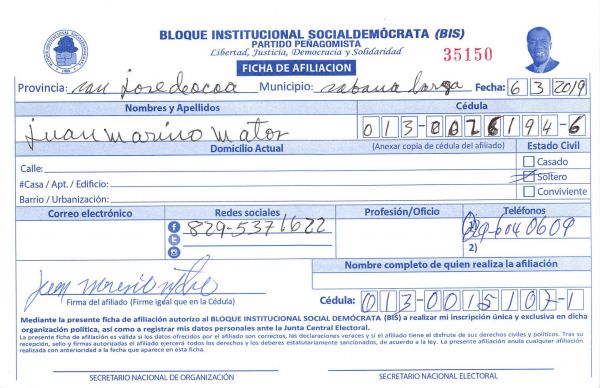 BLOQUE INSTITUCIONAL SOCIALDEMÓCRATA (BIS)
PARTIDO PEÑAGOMISTA
Libertad, Justicia, Democracia y Solidaridad
35150
FICHA DE AFILIACION
Provincia: san josedeocoa Municipio: sabana larga Fecha: 6 3 2019
Nombres y Apellidos Cédula
juan marino mator 013-0026194-6
Domicilio Actual (Anexar copia de cédula del afiliado) Estado Civil
Calle: Casado
#Casa / Apt. / Edificio: Soltero
Barrio / Urbanización: Conviviente
Correo electrónico Redes sociales Profesión/Oficio Teléfonos
829-5371622 1) 604 0609
2)
Nombre completo de quien realiza la afiliación
Firma del afiliado (Firme igual que en la Cédula) Cédula: 013-0015107-1
Mediante la presente ficha de afiliación autorizo al BLOQUE INSTITUCIONAL SOCIAL DEMÓCRATA (BIS) a realizar mi inscripción única y exclusiva en dicha
organización política, así como a registrar mis datos personales ante la Junta Central Electoral.
La presente ficha de afiliación es válida si los datos ofrecidos por el afiliado son correctos, las declaraciones veraces y si el afiliado tiene el disfrute de sus derechos civiles y políticos. Tras su
recepción, sello y firmas autorizadas el afiliado ejercerá todos los derechos y los deberes estatutariamente sancionados, de acuerdo a la ley. La presente afiliación anula cualquier afiliación
realizada con anterioridad a la fecha que aparece en esta ficha.
SECRETARIO NACIONAL DE ORGANIZACIÓN SECRETARIO NACIONAL ELECTORAL